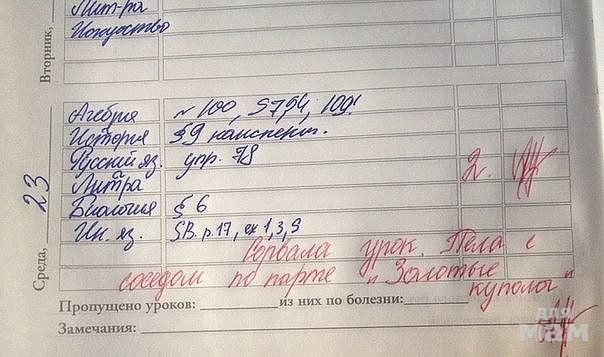 Вторник,
Лит-ра
Искусство
Среда, 23
Алгебра № 100, 
История §9 конспект.
Русский яз. упр. 78 2.
Лит-ра
Биология § 6
Ин. яз. SB. p.17, ex 1,3,9
Сорвала урок. Пела с
соседом по парте "Золотые
купола"
Пропущено уроков: из них по болезни:
Замечания:
для
мам